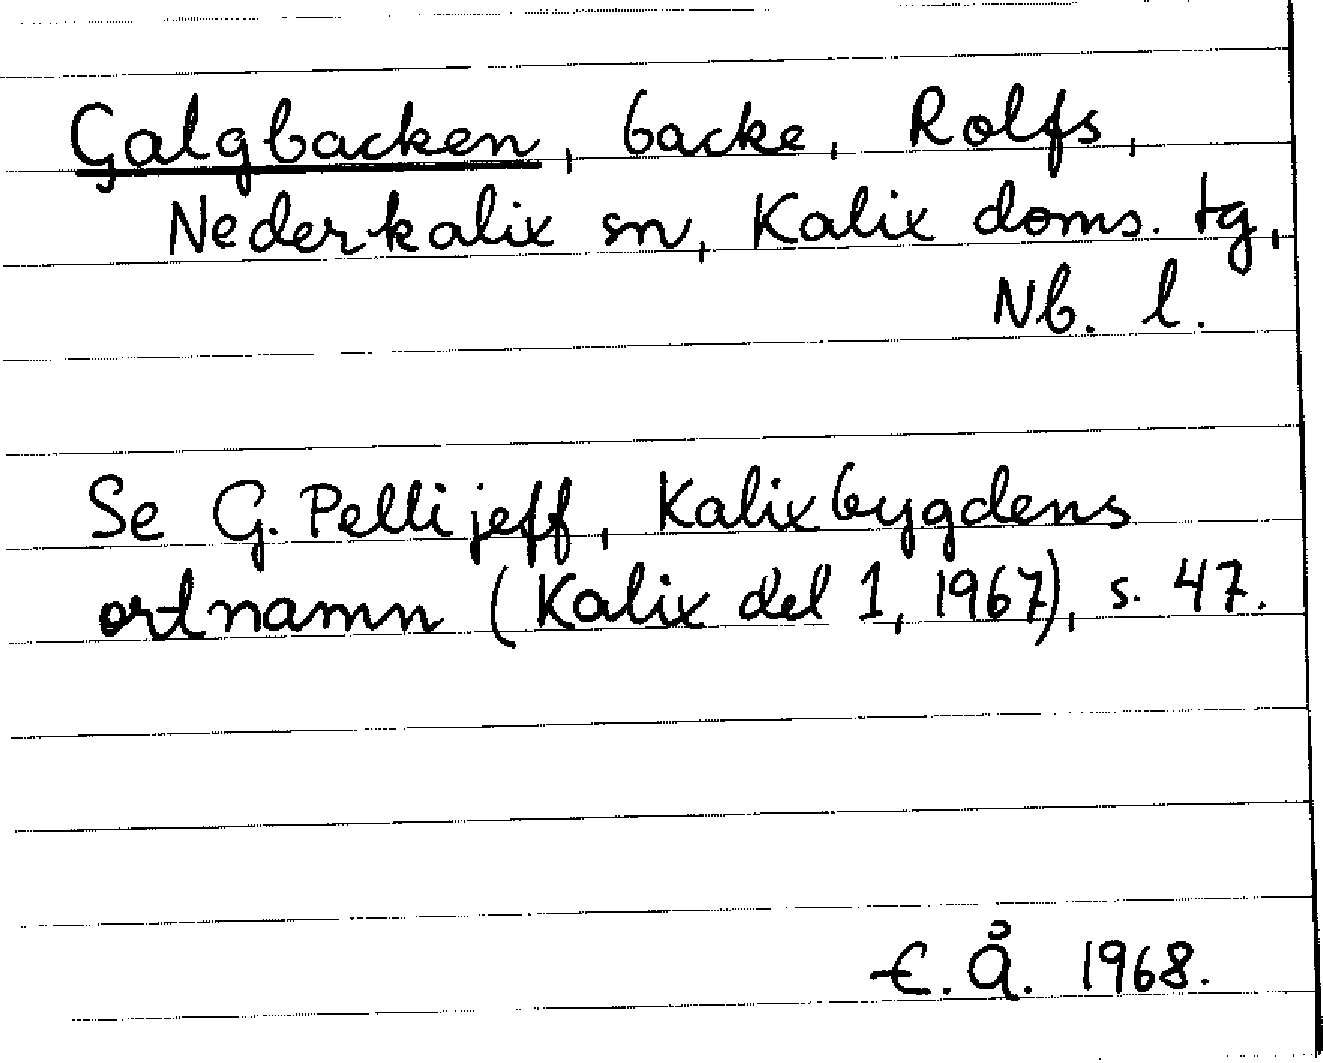 Galgbacken, backe, Rolfs,
Nederkalix sn, Kalix doms. tg,
Nb. l.
Se G. Pellijeff, Kalixbygdens
ortnamn (Kalix del 1, 1967), s. 47.
E. Å. 1968.